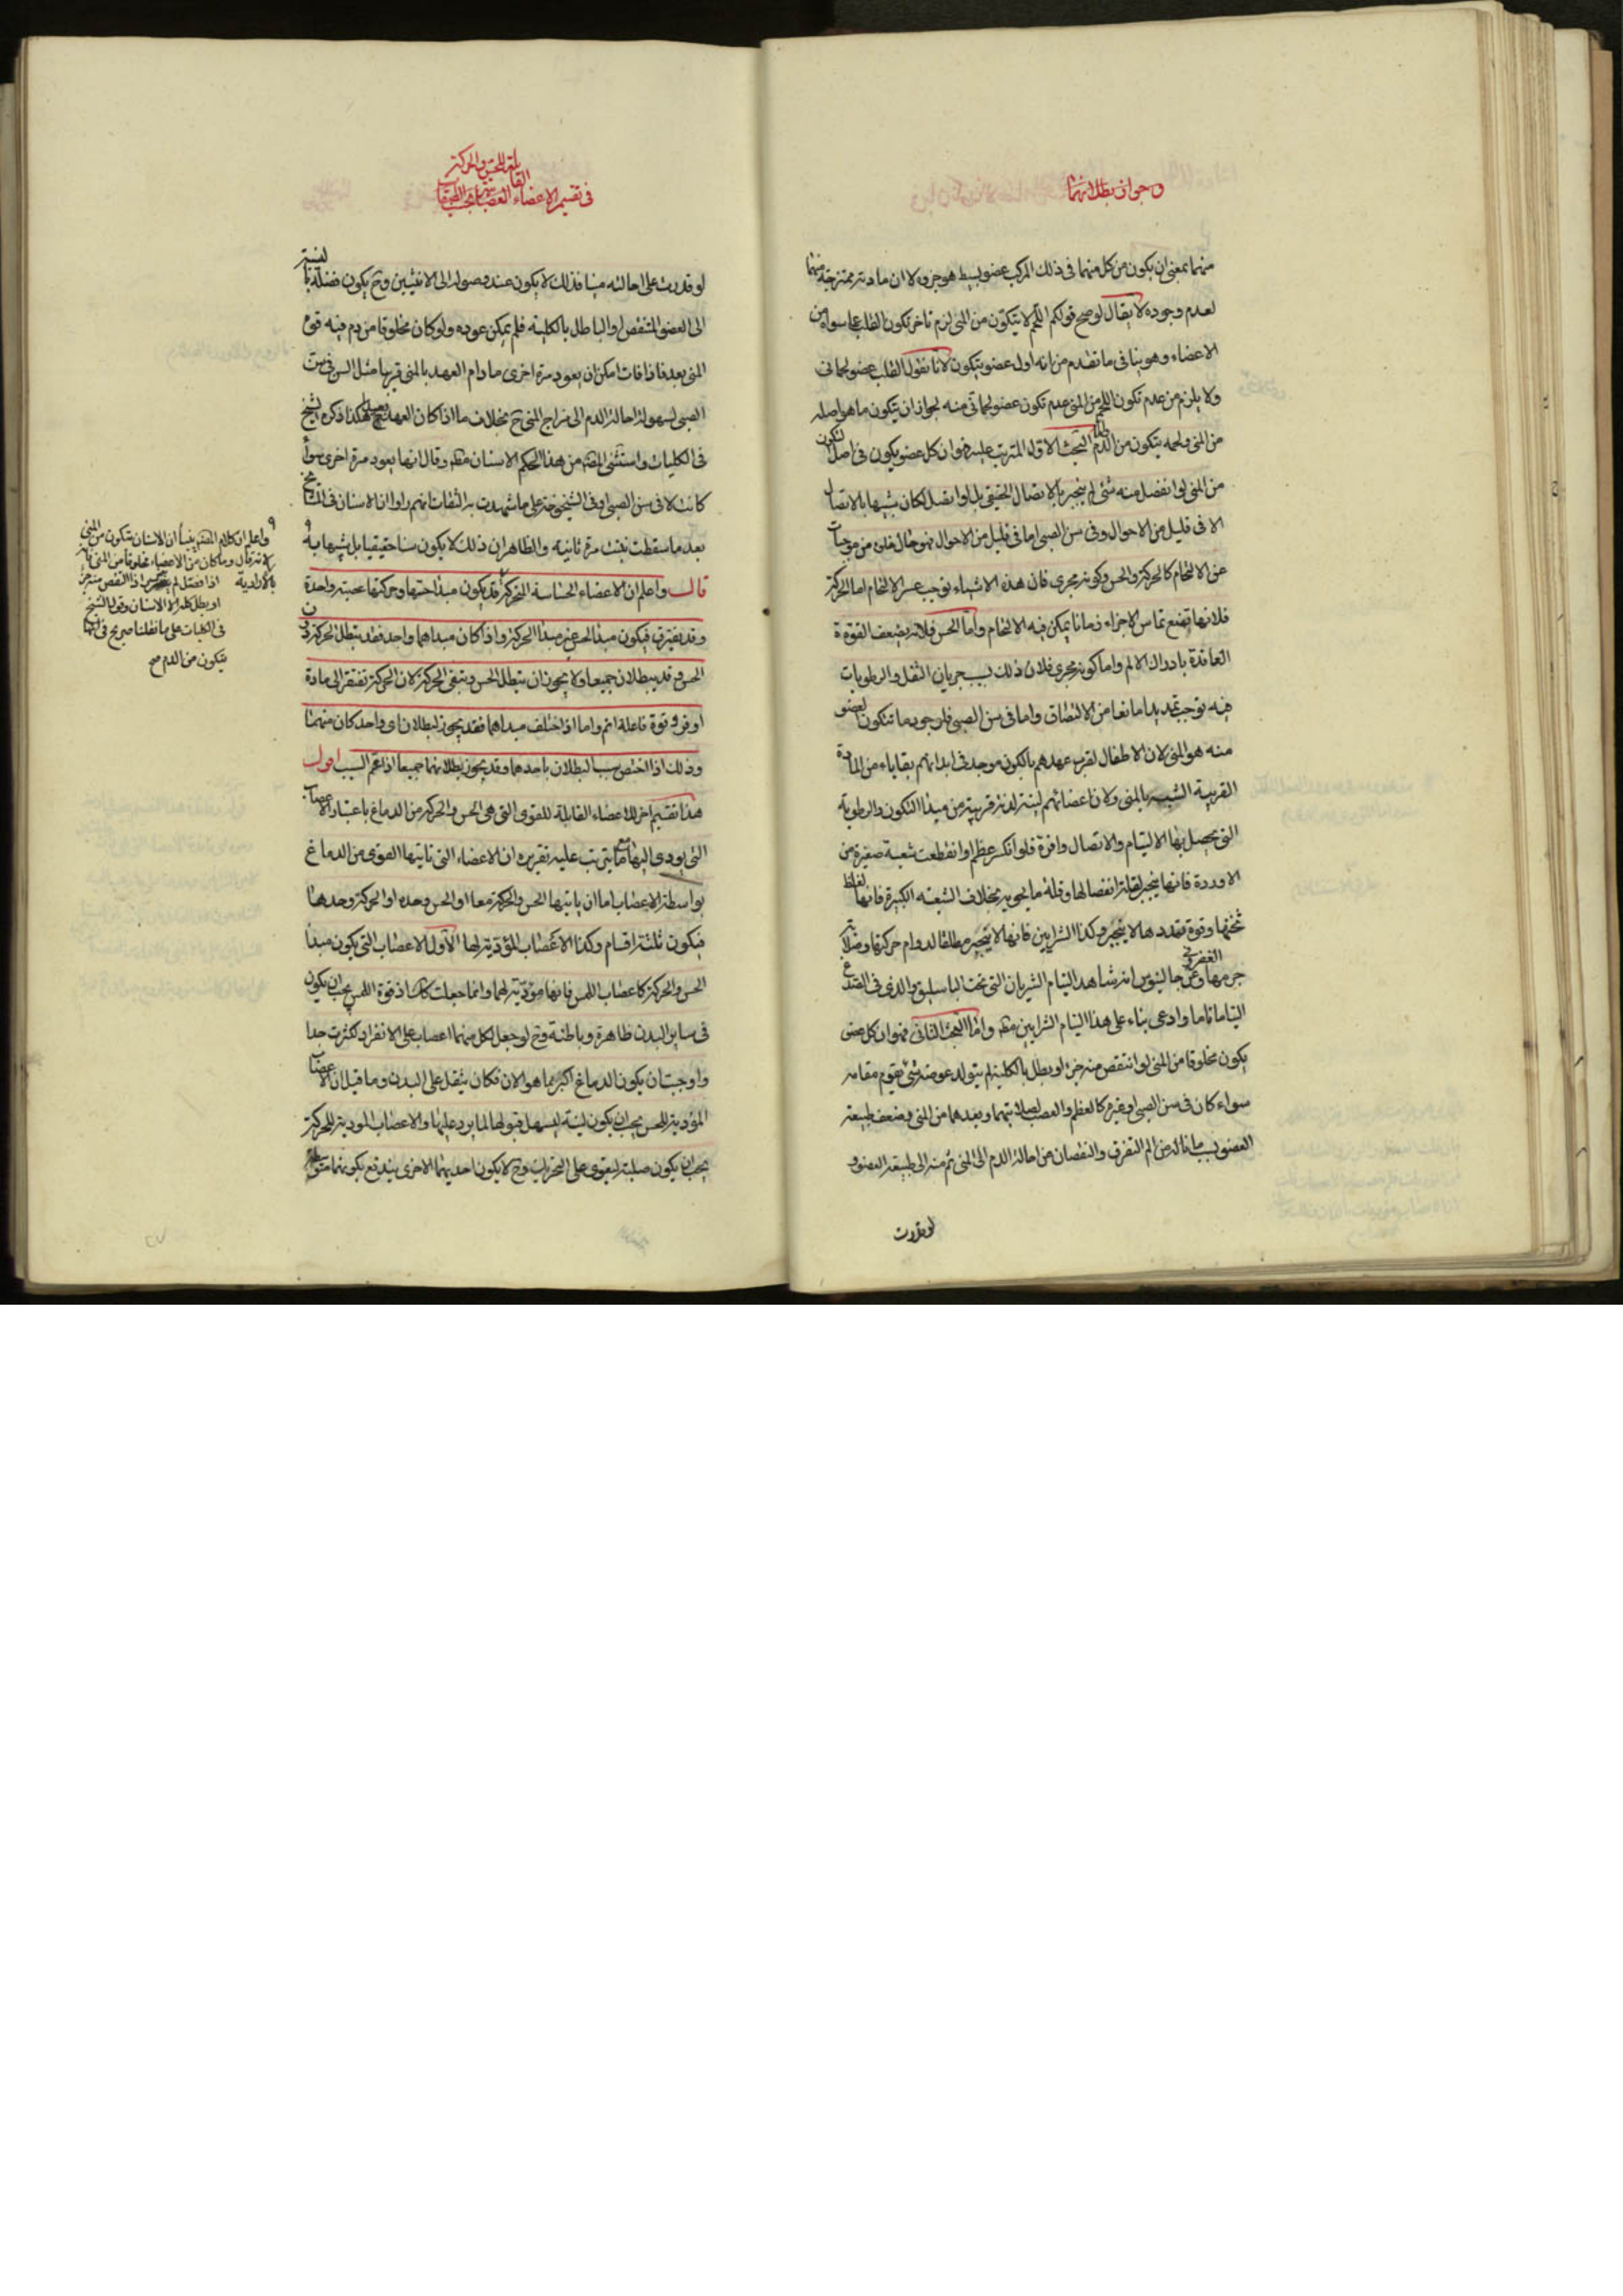 وجوان بطلانهما
منهما بمعنى ان يكون من كل منهما فى ذلك المركب عضو بسيط هو جزوه لا ان مادته ممتزجة منهما
لعدم وجوده لا يقال لو صح قولكم اللحم لا يتكون من المنى لزم تاخر تكون القلب عما سواه من
الاعضاء وهو ينافى ما تقدم من انه اول عضو يتكون لانا نقول القلب عضو لحمانى
ولا يلزم من عدم تكون اللحم من المنى عدم تكون عضو لحمانى منه لجواز ان يتكون ما هو اصله
من المنى ولحمه يتكون من الدم واما البحث الاول المترتب عليه فهو ان كل عضو يكون فى اصل التكون
من المنى لو انفصل منه شئ لم ينجبر بالاتصال الحقيقى بل لو اتصل لكان شبيها بالاتصال
الا فى قليل من الاحوال وفى سن الصبى اما فى قليل من الاحوال فهو حال خلوه من موجبات
عن الالتحام كالحركة والحس وكونه مجرى فان هذه الاشياء توجب عسر الالتحام اما الحركة
فلانها تمنع تماس الاجزاء زمانا يمكن فيه الالتحام واما الحس فلانه يضعف القوة
العاقدة بادراك الالم واما كونه مجرى فلان ذلك بسبب جريان الثفل والرطوبات
فيه توجب تمديدا مانعا من الالتصاق واما فى سن الصبى فلوجود ما تتكون العضو
منه هو المنى لان الاطفال لقرب عهدهم بالكون موجد فى ابدانهم بقاياء من المادة
القريبة الشبيه بالمنى ولان اعضائهم لينة لدنة قريبة من مبدا التكون والرطوبة
التى يحصل بها الالتيام والاتصال وافرة فلو انكسر عظم او انقطعت شعبة صغيرة من
الاوردة فانها ينجبر لقلة انفصالها وقلة ما يحويه بخلاف الشعبة الكبيرة فانها لغلظ
ثخنها وقوة تمددها لا ينجبر وكذا الشرايين فانها لا ينجبر مطلقا لدوام حركتها وصلابة
جرمها الغضروفى وعن جالينوس انه شاهد التيام الشريان التى تحت الباسليق والذى فى الصدغ
التياما تاما وادعى بناء على هذا التيام الشرايين مطلقا واما البحث الثانى فهو ان كل عضو
يكون مخلوقا من المنى لو انتقص منه جزء او بطل بالكلية لم يتولد عوضه شئ يقوم مقامه
سواء كان فى سن الصبى او غيره كالعظم والعصب لصلابتهما وبعدهما من المنى وضعف طبيعة
العضو بسبب ما ناله من الم التفرق والنقصان عن احالة الدم الى المنى ثم منه الى طبيعة العضو و
لو قدرت
فى تقسيم الاعضاء العصبانية القابلة للحس والحركة
لو قدرت على احالته منيا فذلك لا يكون عند وصوله الى الانثيين وح يكون فضلة بالنسبة
الى العضو المنتقص او الباطل بالكلية فلم يمكن عوده ولو كان مخلوقا من دم فيه قوة
المنى بعد فاذا فات امكن ان يعود مرة اخرى ما دام العهد بالمنى قريبا مثل السن فى سن
الصبى لسهولة احالة الدم الى مزاج المنى ح بخلاف ما اذا كان العهد بعيدا هكذا ذكره الشيخ
فى الكليات واستثنى المصنف من هذا الحكم الاسنان مطلقا وقال انها يعود مرة اخرى سواء
كانت لا فى سن الصبى او فى الشيخوخة على ما شهدت به الثقات بانهم راوا ان الاسنان فى المشايخ
بعد ما سقطت نبتت مرة ثانية والظاهر ان ذلك لا يكون سنا حقيقيا بل شبيها به
قال واعلم ان الاعضاء الحساسة المتحركة قد يكون مبدا حسها وحركتها عصبة واحدة
وقد يفترق فيكون مبدا الحس غير مبدا الحركة واذا كان مبداهما واحد فقد يتطل الحركة دون
الحس وقد يبطلان جميعا ولا يجوز ان يتطل الحس ويبقى الحركة لان الحركة تفتقر الى مادة
اوفر وقوة فاعلة اتم واما اذا اختلف مبداهما فقد يجوز لبطلان اى واحد كان منهما
وذلك اذا اختص سبب البطلان باحدهما وقد يجوز بطلانهما جميعا اذا عم السبب اقول
هذا تقسيم اخر للاعضاء القابلة للقوى التى هى الحس والحركة من الدماغ باعتبار الاعصاب
التى يودى اليها مع ما يترتب عليه تقريره ان الاعضاء التى تاتيها القوى من الدماغ
بواسطة الاعصاب اما ان ياتيها الحس والحركة معا او الحس وحده او الحركة وحدها
فيكون ثلثة اقسام وكذا الاعصاب المؤدية لها الاول الاعصاب التى يكون مبدا
الحس والحركة كاعصاب اللمس فانها مؤدية لهما وانما جعلت كذلك اذ قوة اللمس يجب ان يكون
فى ساير البدن ظاهرة وباطنة وح لو جعل لكل منهما اعصاب على الانفراد لكثرت جدا
واوجبت ان يكون الدماغ اكبر مما هو الان فكان يثقل على البدن وما قيل ان الاعصاب
المؤدية للحس يجب ان يكون لينة ليسهل قبولها لما يرد عليها والاعصاب المودية للحركة
يجب ان يكون صلبة ليقوى على التحريك وح لا يكون احديهما الاخرى يندفع بكونهما متوسطة
واعلم ان كلام المصنف ينبأ ان الاسنان تتكون من المنى
لانه قال وما كان من الاعضاء مخلوقا من المنى فانه
اذا انفصل لم ينجبر اذا انتقص منه جزء
او بطل كله الا الاسنان وقول الشيخ
فى الكليات على ما نقلنا صريح فى انها
يتكون من الدم صح